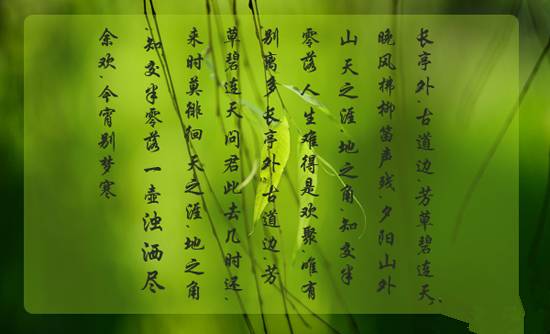 长亭外、古道边、芳草碧连天、
晚风拂柳笛声残、夕阳山外
山天之涯、地之角、知交半
零落、人生难得是欢聚、唯有
别离多、长亭外、古道边、芳
草碧连天、问君此去几时还、
来时莫徘徊、天之涯、地之角
、知交半零落一壶浊洒尽
余欢、今宵别梦寒